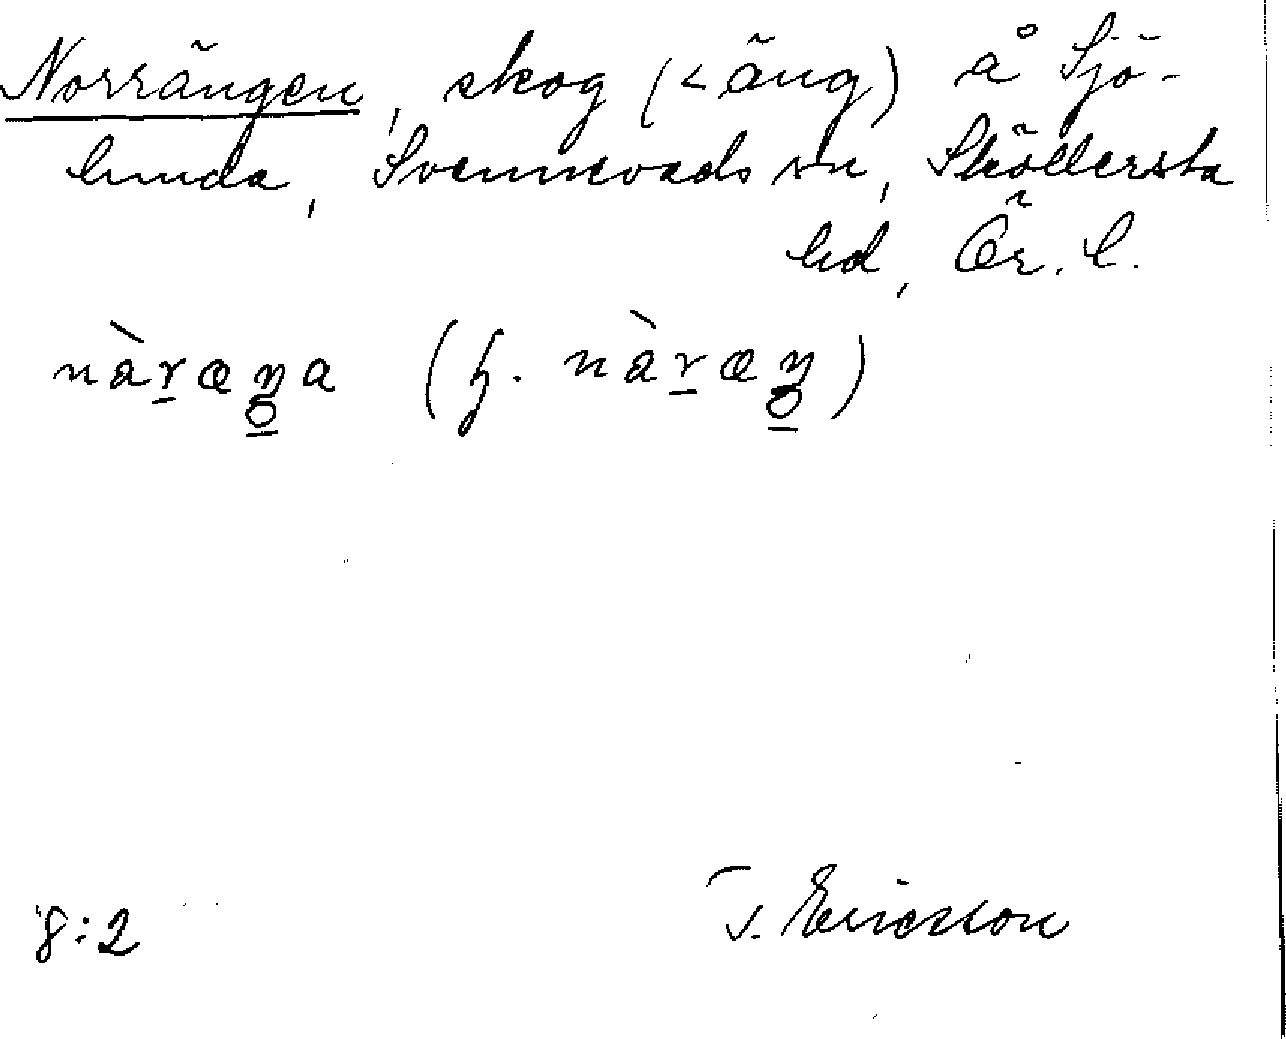 Norrängen, skog (< äng) å Sjö-
lunda, Svennevads sn, Sköllersta
hd, Ör. l.
nàr̲æŋa (h. nàr̲æŋ)
8:2
T. Ericsson